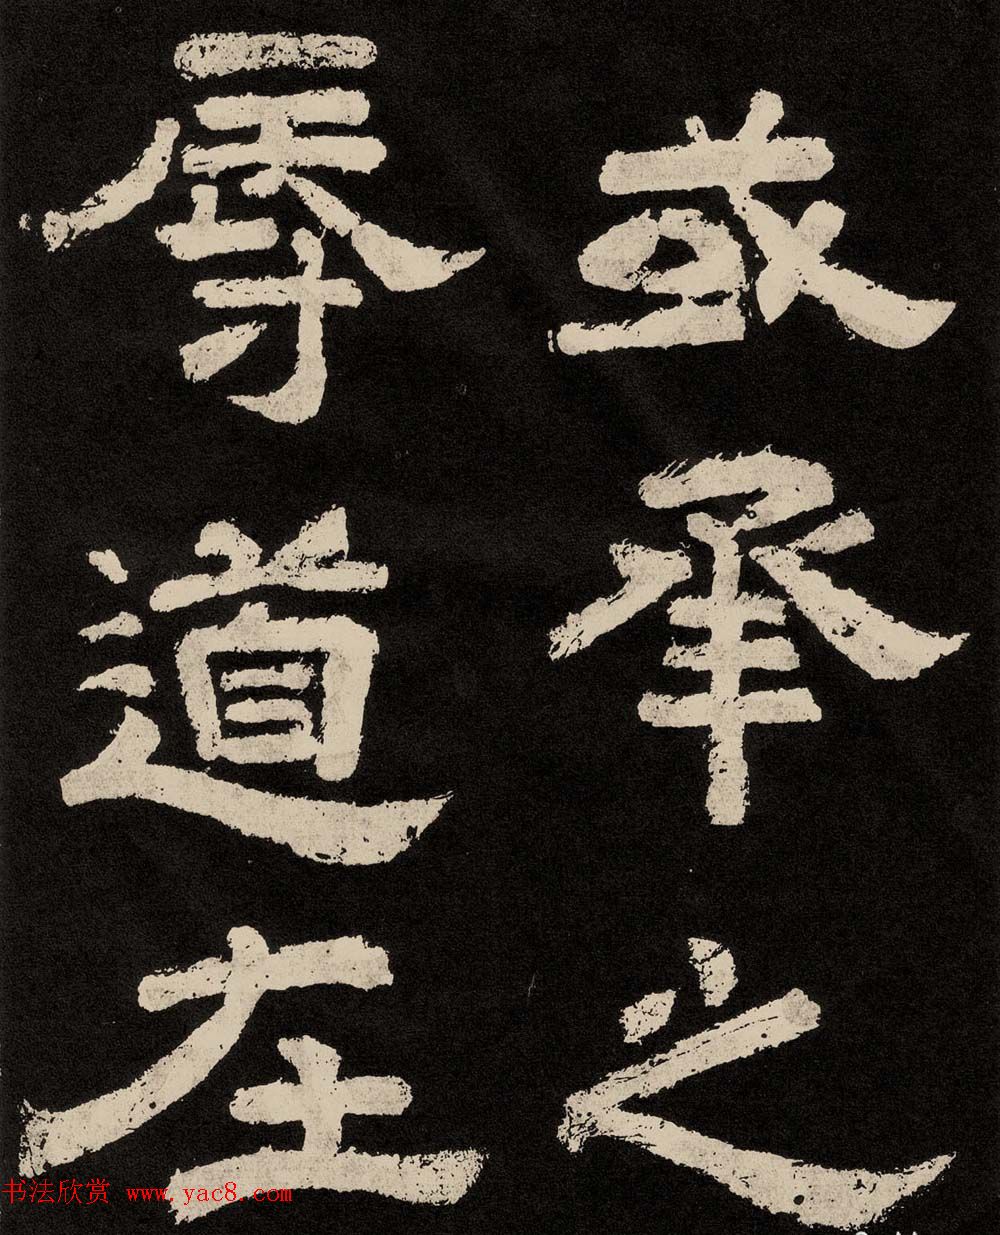 或承之
辱道在
书法欣赏 www.yac8.com